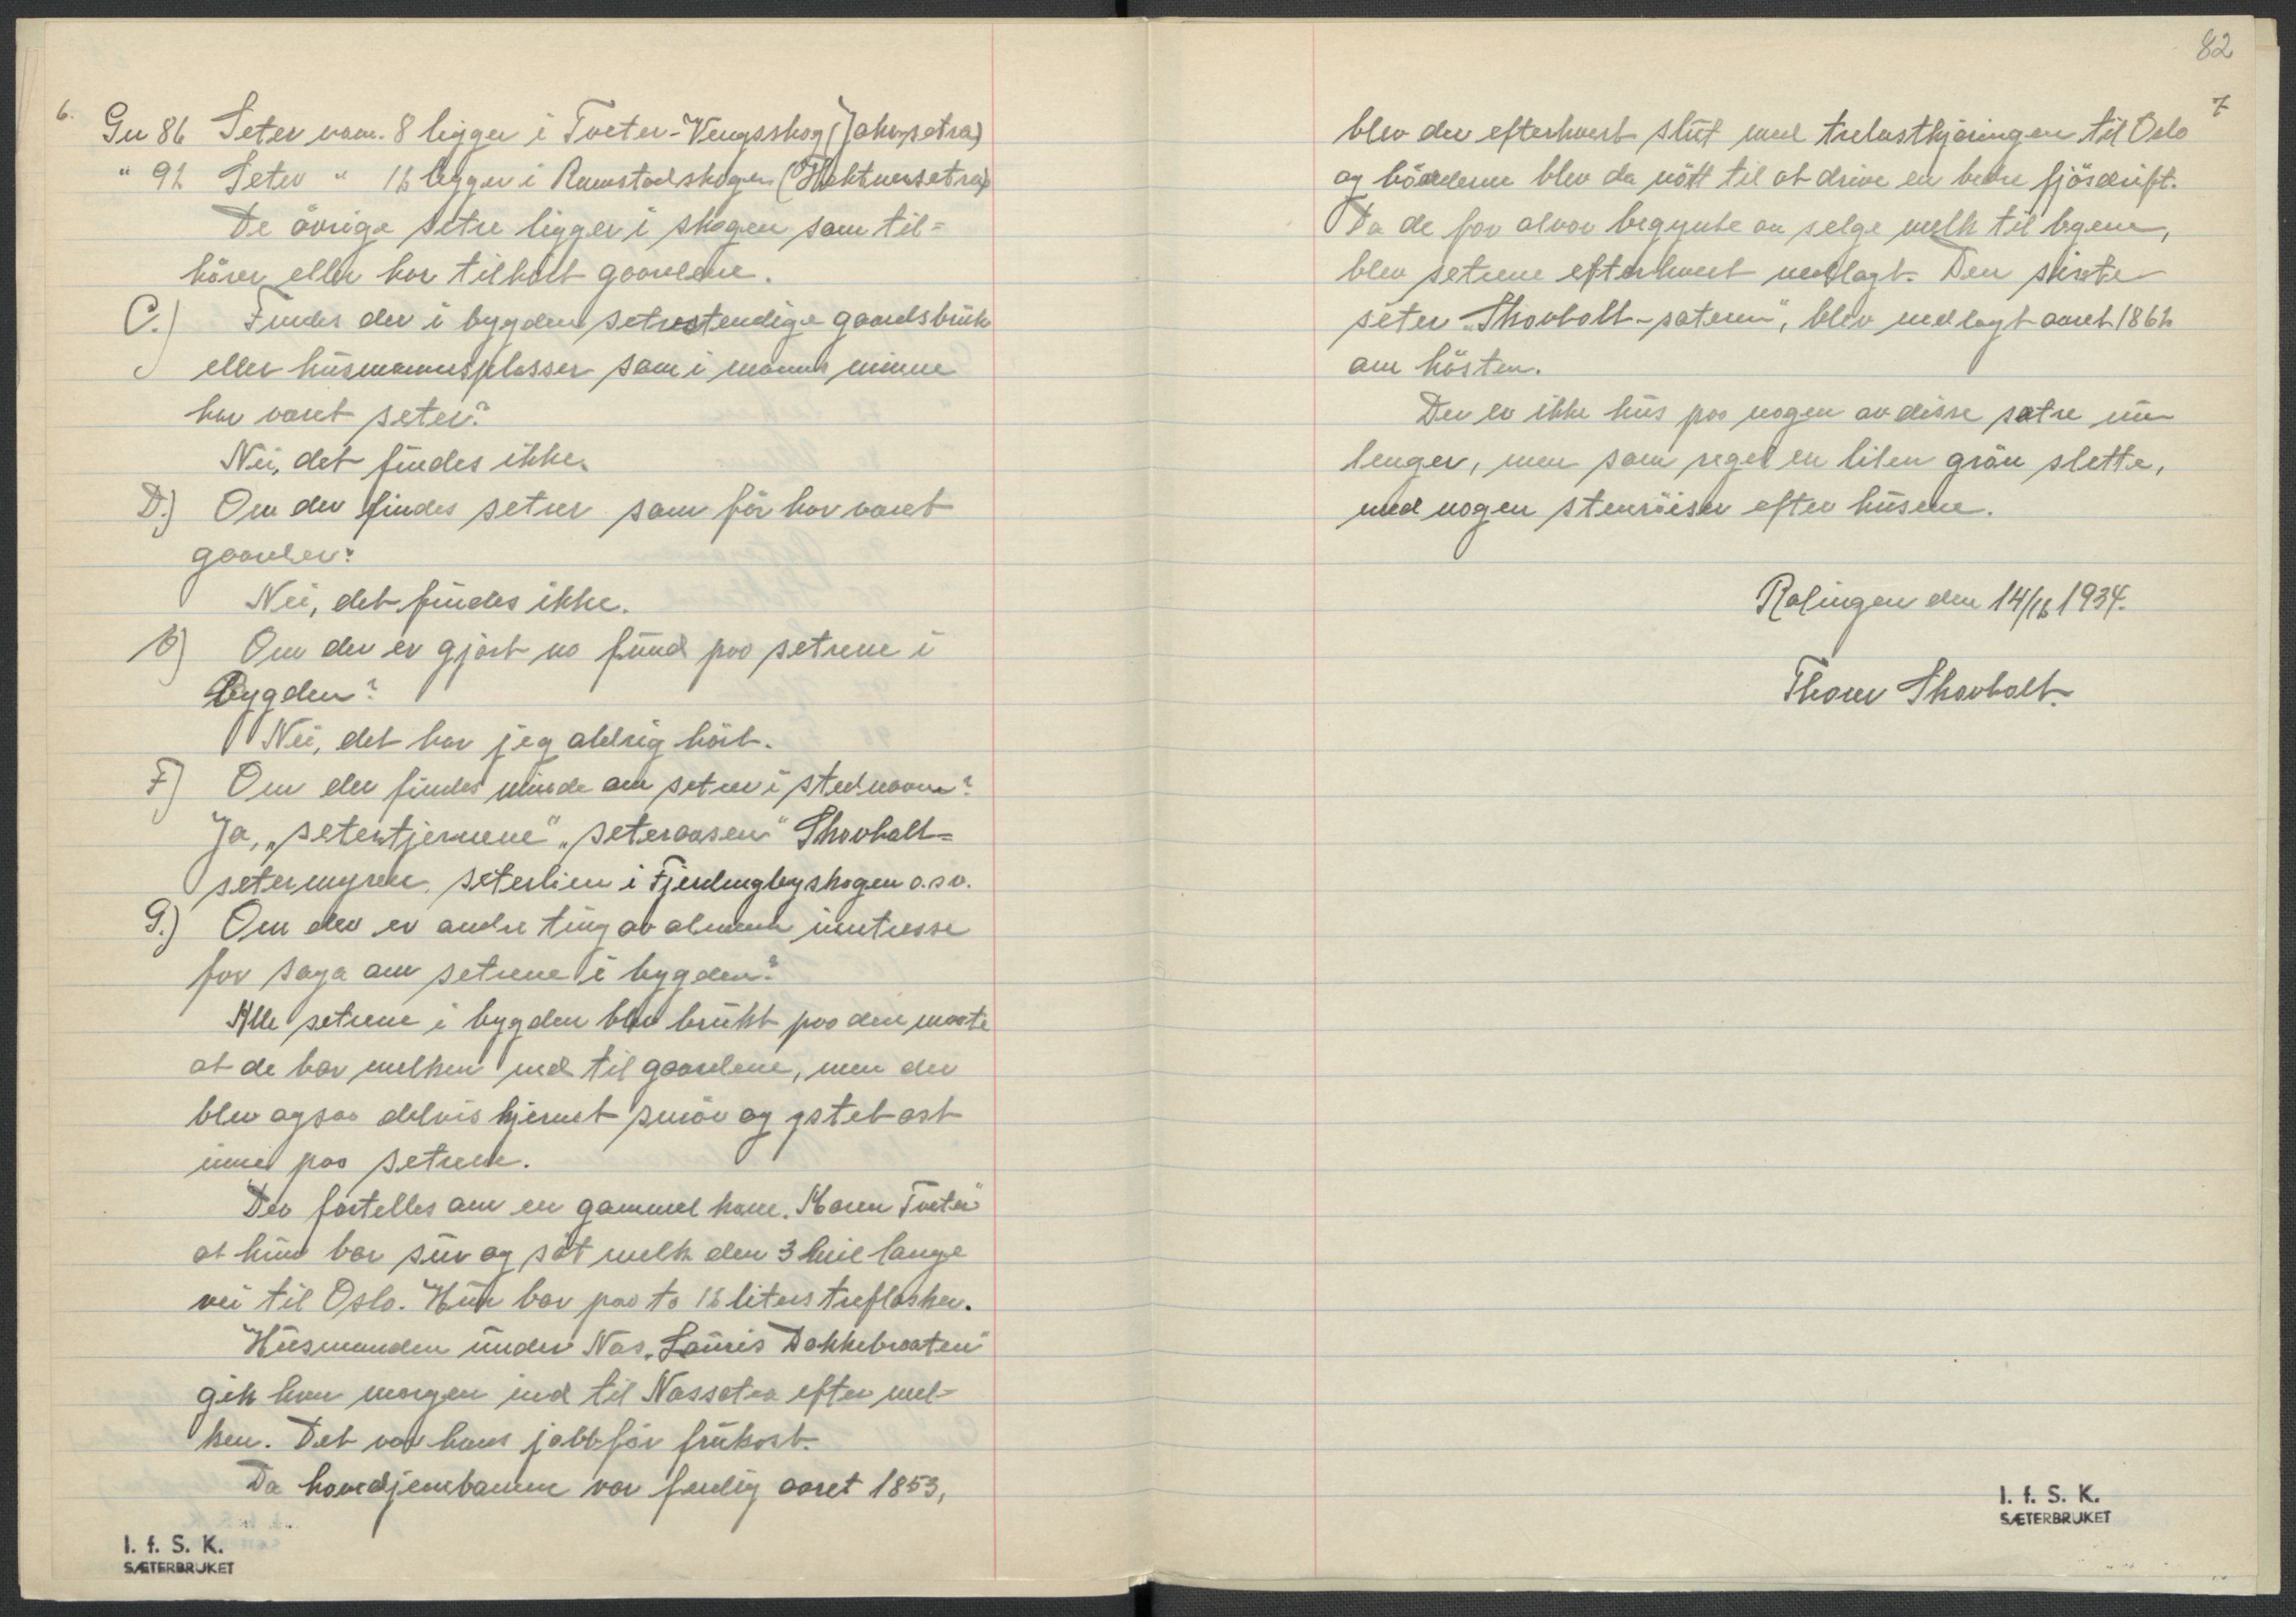 6.
Gn 86 Seter nam. 8 ligger i Tveter-Vengsskog (Jahrsetra)
" 92 Seter " 12 ligger i Ramstadskogen (Hektnersetra)
De övrige setre ligger i skogen som til=
hörer eller har tilhört gaardene.
C.) Findes der i bygden selvstendige gaardsbruk
eller husmannsplasser som i manns minne
har været seter?
Nei, det findes ikke.
D.) Om der findes setrer som för har været
gaarder?
Nei, det findes ikke.
E) Om der er gjort no fund paa setrene i
bygden?
Nei, det har jeg aldrig hört.
F) Om der findes minde om setrer i stednavn?
Ja, „setertjernene" „seteraasen" Skovholt=
setermyren, seterlien i Fjerdingbyskogen o.s.v.
G.) Om der er andre ting av almenn inntresse
for saga om setrene i bygden?
Alle setrene i bygden blev brukt paa den maate
at de bar melken ned til gaardene, men der
blev ogsaa delvis kjernet smör og ystet ost
inne paa setrene.
Der fortelles om en gammel kone „Maren Tveter"
at hun bar sur og söt melk den 3 mil lange
vei til Oslo. Hun bar paa to 12 liters treflasker.
Husmanden under Nas „Lauris Dakkebraaten"
gik hver morgen ind til Nassetra efter mel-
ken. Det var hans jobb för frukost.
Da hovedjernbanen var ferdig aaret 1853,
I. f. S. K.
SÆTERBRUKET
82
7
blev der efterhvert slut med trelastkjöringen til Oslo
og bönderne blev da nött til at drive en bedre fjösdrift.
Da de for alvor begynte aa selge melk til byene,
blev setrene efterhvert nedlagt. Den sisste
seter „Skovholt-sæteren", blev nedlagt aaret 1862
om hösten.
Der er ikke hus paa nogen av disse setre nu
lenger, men som regel en liten grön slette,
med nogen stenröiser efter husene.
Rælingen den 14/12 1934.
Thorer Skovholt.
I. f. S. K.
SÆTERBRUKET